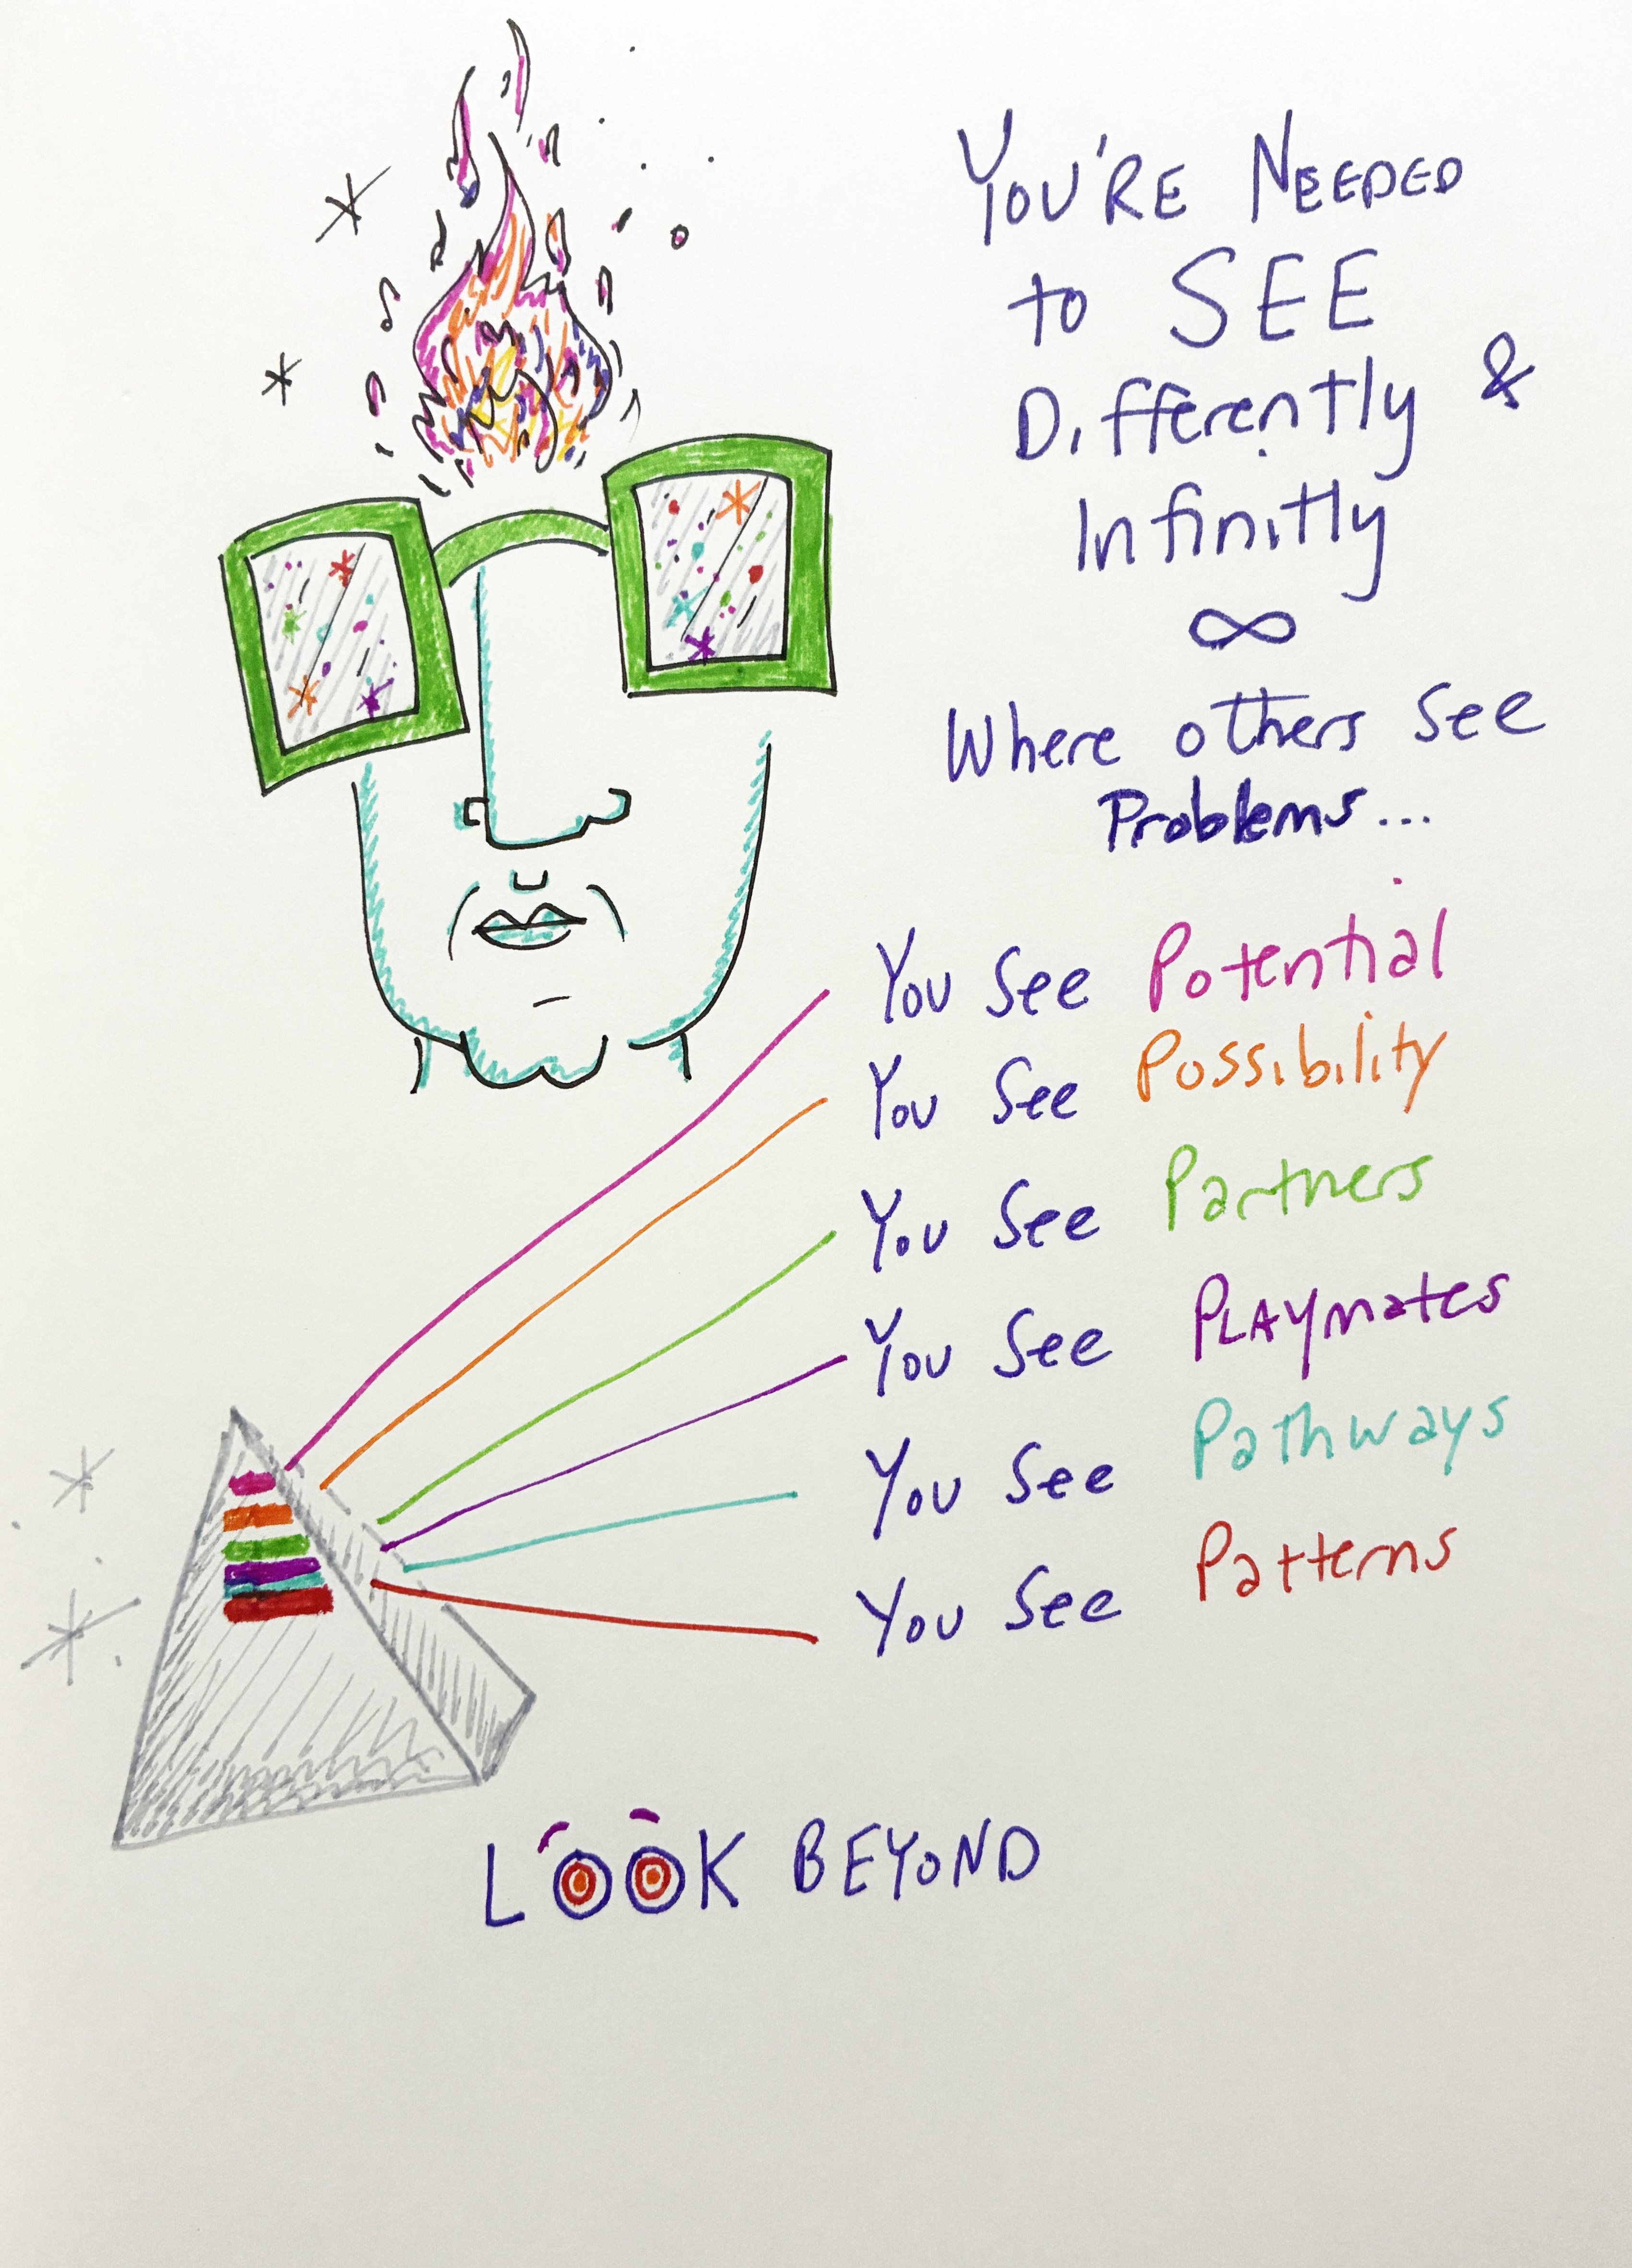 You're Needed
to SEE
Differently &
Infinitly
∞
Where others see
Problems...
You See Potential
You See Possibility
You See Partners
You See Playmates
You See Pathways
You See Patterns
LOOK BEYOND